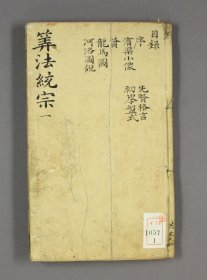 算法統宗 一
目錄
序
賓渠小像
先賢格言
初學盤式
龍馬圖
河洛圖說
1057
1